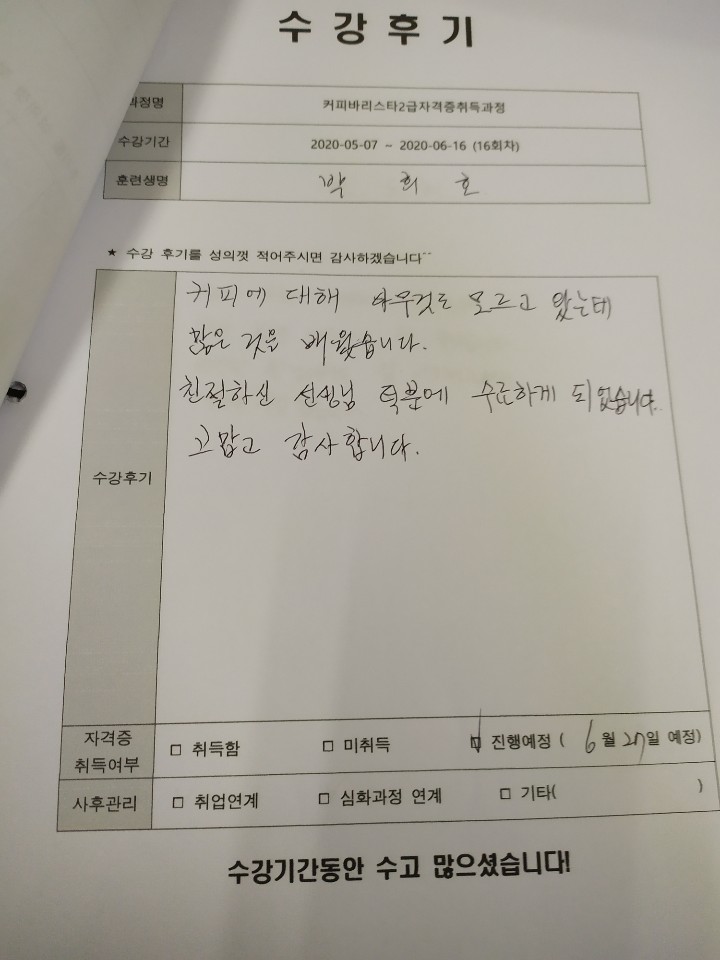 수강후기
과정명 커피바리스타2급자격증취득과정
수강기간 2020-05-07 ~ 2020-06-16 (16회차)
훈련생명 박 희 호
★ 수강 후기를 성의껏 적어주시면 감사하겠습니다^^
커피에 대해 아무것도 모르고 왔는데
많은 것을 배웠습니다.
친절하신 선생님 덕분에 수료하게 되었습니다.
고맙고 감사합니다.
수강후기
자격증
취득여부
□ 취득함 □ 미취득 □ 진행예정 ( 6월 27일 예정)
사후관리 □ 취업연계 □ 심화과정 연계 □ 기타( )
수강기간동안 수고 많으셨습니다!